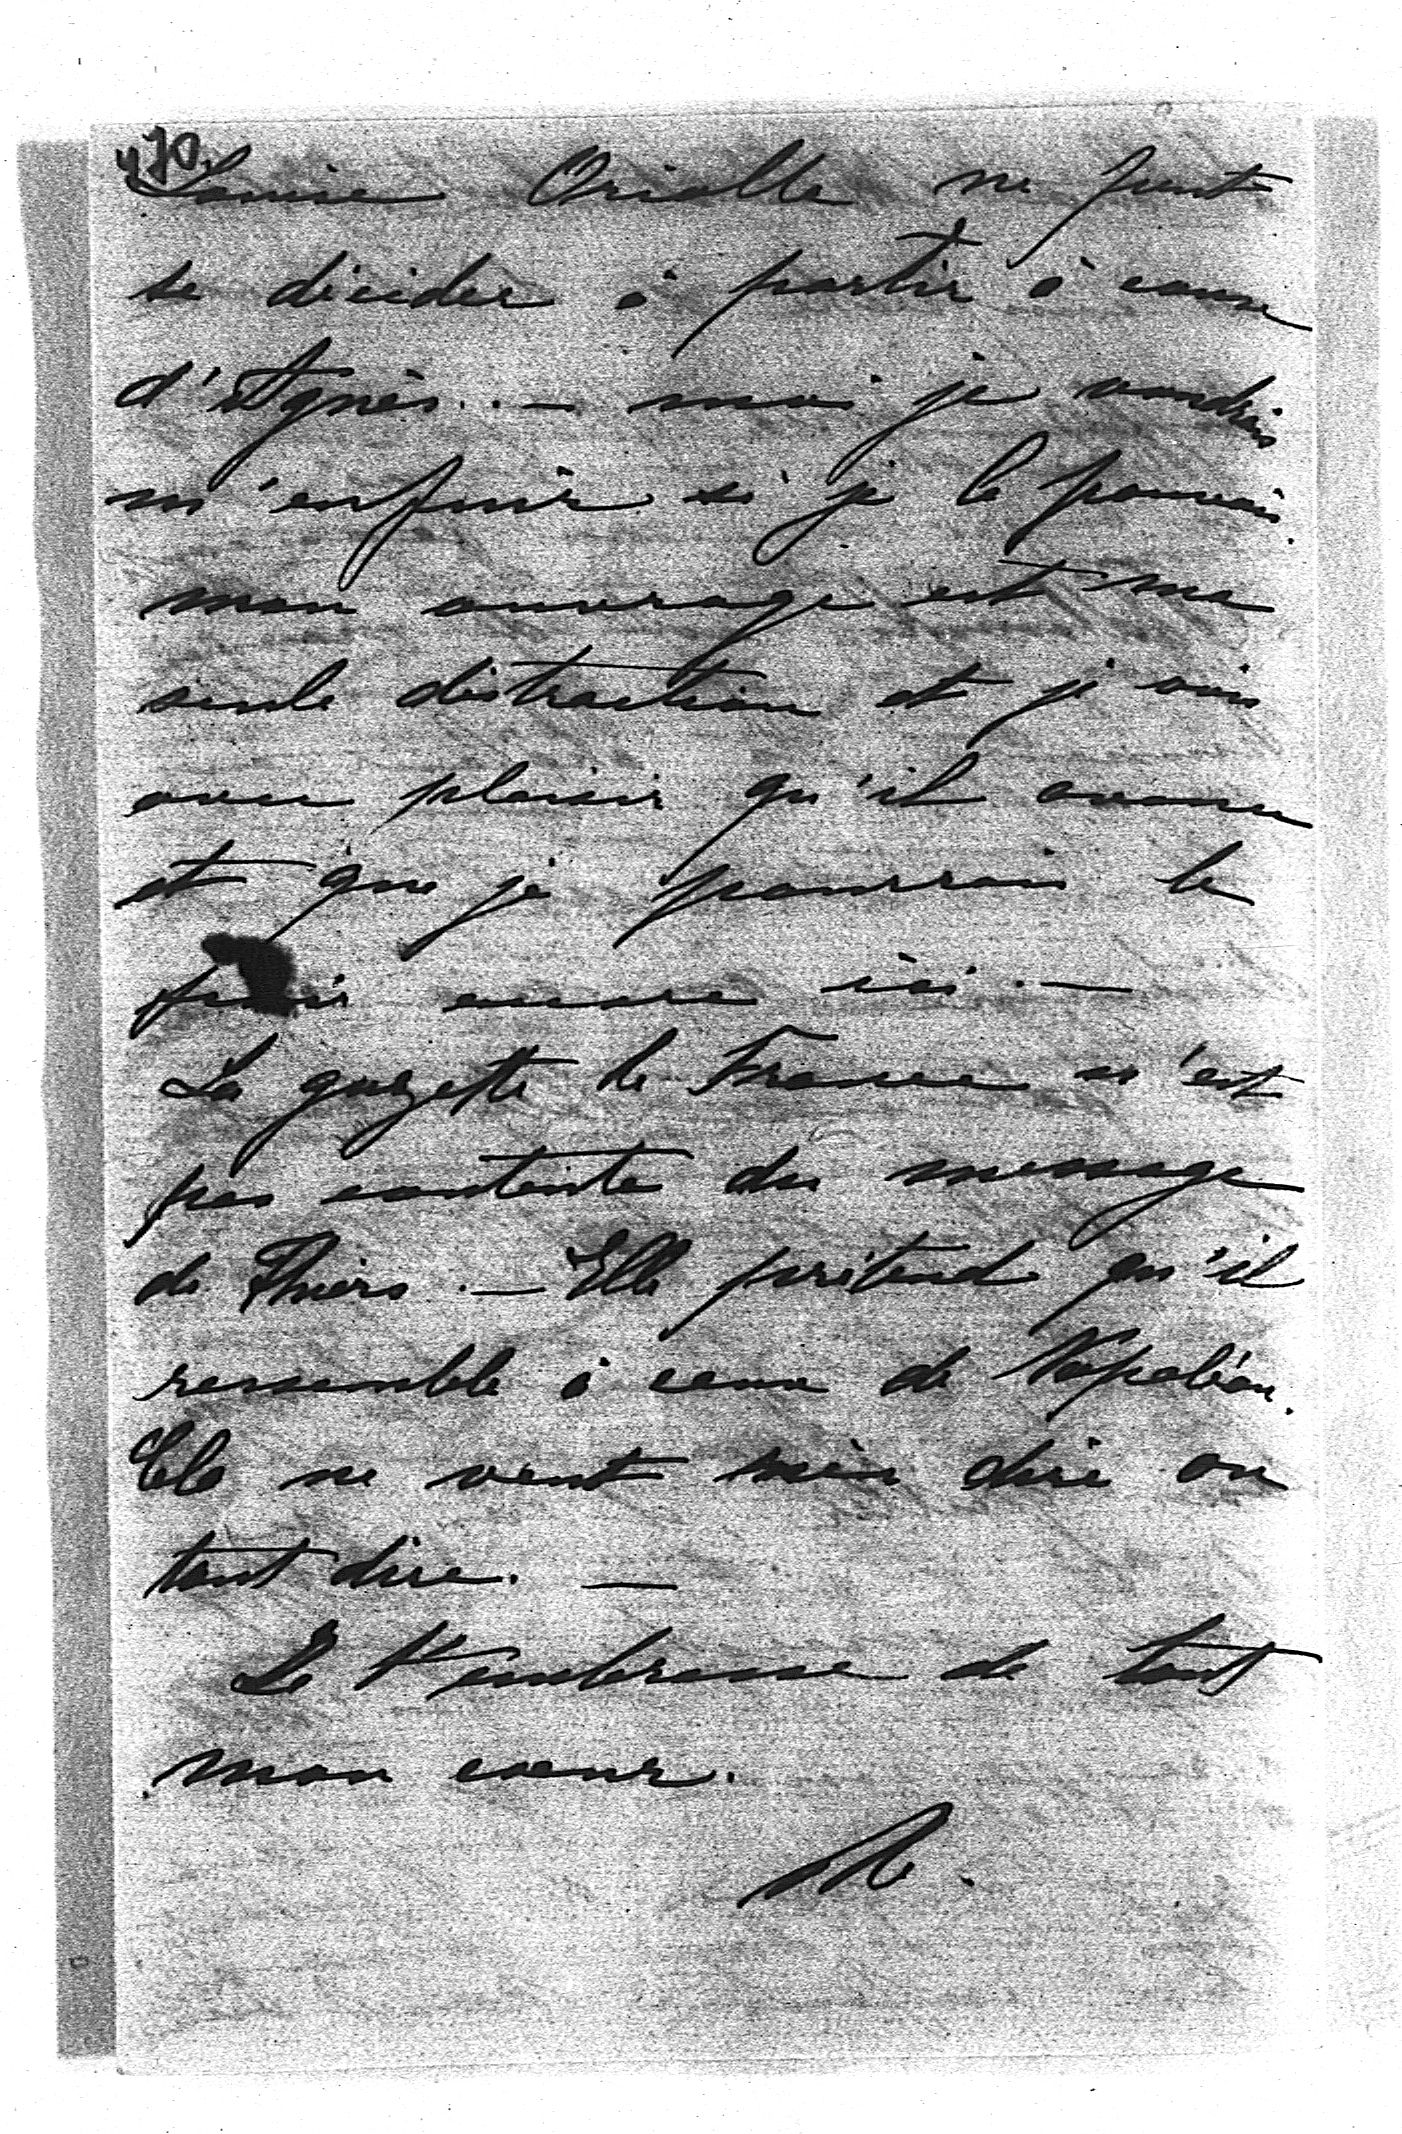 470
Louise Oriolle ne peut
se décider à partir à cause
d'Agnès. — moi je voudrais
m'enfuir si je le pouvais.
mon ouvrage est ma
seule distraction et je vois
avec plaisir qu'il avance
et que je pourrais le
finir encore ici. —
La gazette de France n'est
pas contente du message
de Thiers. — Elle prétend qu'il
ressemble à ceux de Napoléon.
Cela ne veut rien dire ou
tout dire. —
Je t'embrasse de tout
mon cœur.